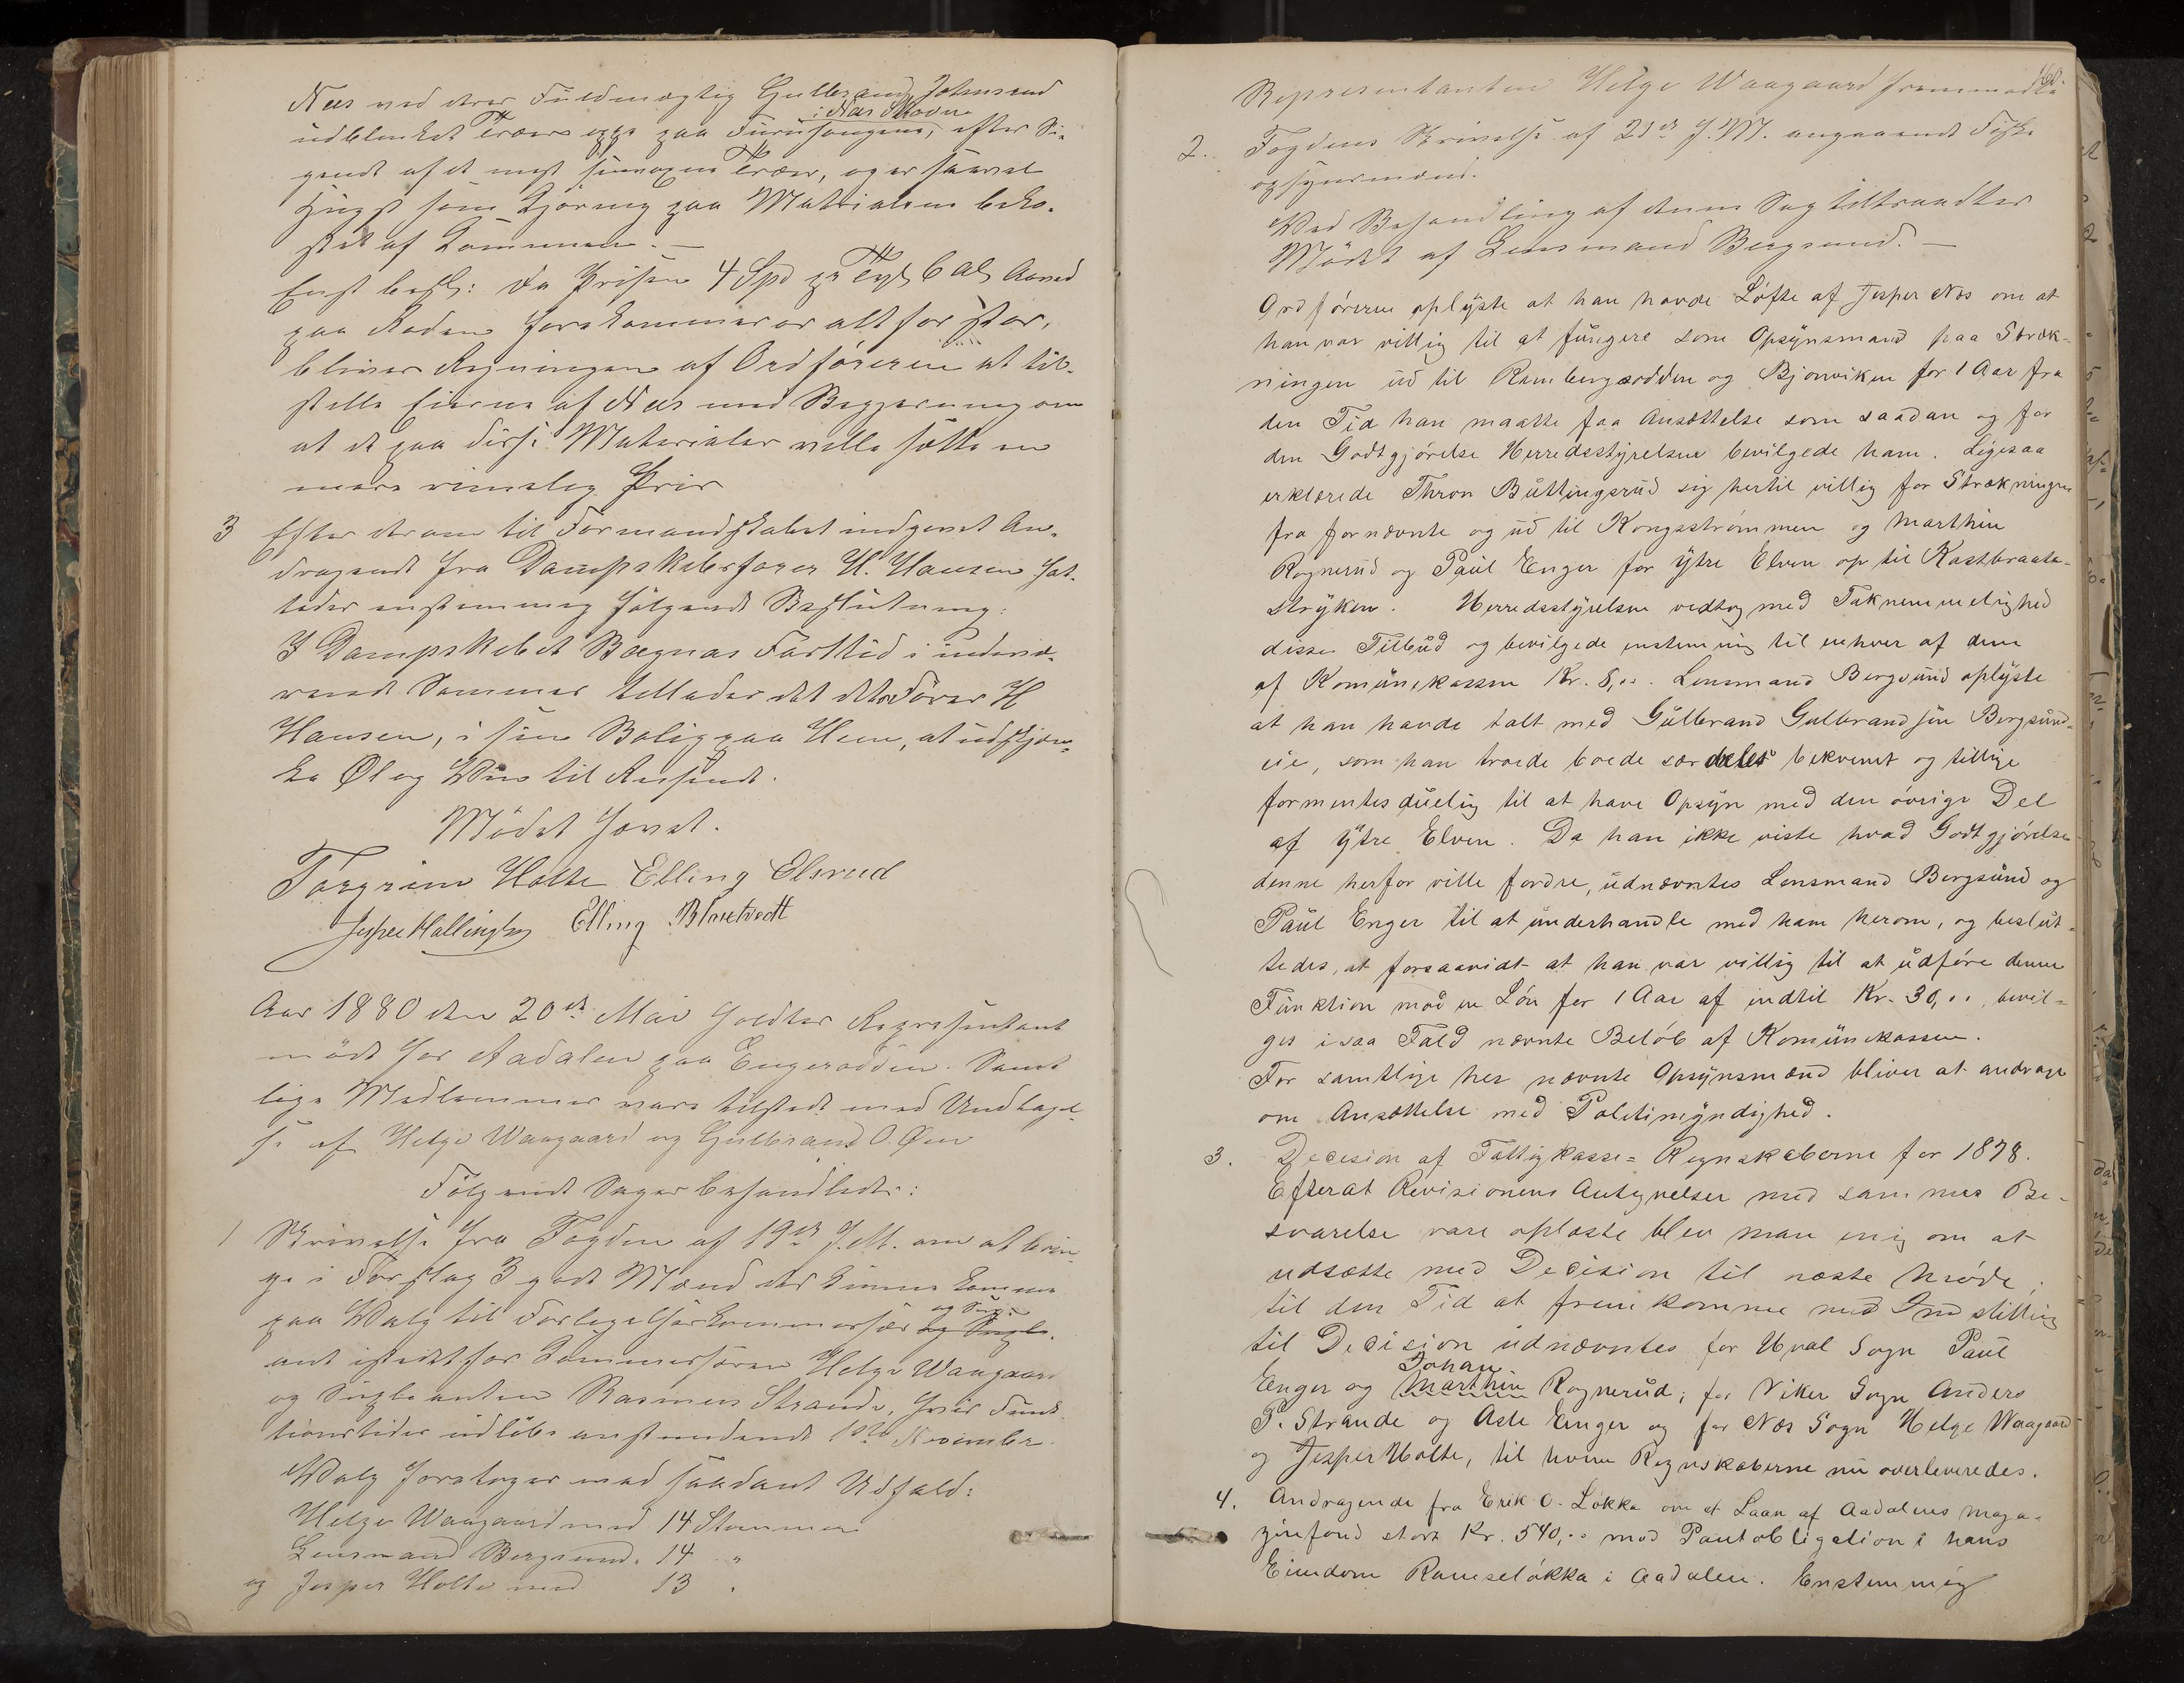 Næs ved deres Fuldmægtig Gulbrand Johnsrud
i Næs Skoven
udblinket Træer oppe paa Furuhaugene, efter Si-
gende af de mest Træer, og er saavel
Hugst som Kjøring paa Materialerne beko-
stet af Kommunen. —
Enst. besl: Da Prisen 4 Spd pr Tylt 6 Al
paa Roden forekommer os alt for stor,
bliver Regningen af Ordføreren at til-
stille Eierne af Næs med Begjæring om
at de paa disse Materialer ville sætte en
mere rimelig Pris
3 Efter derom til Formandskabet indgivet An-
dragende fra Dampskibsfører H. Hansen fat-
tedes enstemmig følgende Beslutning:
I Dampskibet Bægnas Farttid i indevæ-
rende Sommer tillades det dets Fører H
Hansen, i sin Bolig paa Hen, at udskjæn-
ke Øl og Vin til Reisende.
Mødet hævet.
Torgrim Holte Elling Elsrud
Jesper Hallingby Elling Bloutvedt
Aar 1880 den 20de Mai holdtes Repræsentant
møde for Aadalen paa Engerodden. Samt
lige Medlemmer vare tilstede med Undtagel
se af Helge Waagaard og Gulbrand O. Øen
Følgende Sager behandledes:
1 Skrivelse fra Fogden af 19de f. M. om at brin
ge i Forslag 3 gode Mænd der kunne komme
og Sup-
paa Valg til Forligelseskommissær og Suple-
ant istedetfor Kommissæren Helge Waagaard
og Supleanten Rasmus Strande, hvis Funk
tionstider udløbe anstundende 1ste November.
Valg foretoges med saadant Udfald:
Helge Waagaard med 14 Stemmer
Lensmand Bergsund. 14 "
og Jesper Holte med 13 "
160.
Repræsentanten Helge Waagaard fremmødte
2. Fogdens Skrivelse af 21de f. M. angaaende Fiske
opsynsmænd.
Ved Behandling af denne Sag tiltraadtes
Mødet af Lensmand Bergsund. —
Ordføreren oplyste at han havde Løfte af Jesper Næs om at
han var villig til at fungere som Opsynsmand paa Stræk-
ningen ud til Rambergsodden og Bjonviken for 1 Aar fra
den Tid han maatte faa Ansættelse som saadan og for
den Godtgjørelse Herredsstyrelsen bevilgede ham. Ligesaa
erklærede Thron Buttingsrud sig hertil villig for Strækningen
fra fornævnte og ud til Kongsstrømmen og Marthin
Rognerud og Paul Enger for ytre Elven op til Kastbraata-
stryken. Herredsstyrelsen vedtog med Taknemmelighed
disse Tilbud og bevilgede enstemmig til enhver af dem
af Komunekassen Kr. 8,00. Lensmand Bergsund oplyste
at han havde talt med Gulbrand Gulbrandsen Bergsund-
eie, som han troede boede særdeles bekvemt og tillige
formentes duelig til at have Opsyn med den øvrige Del
af ytre Elven. Da han ikke viste hvad Godtgjørelse
denne herfor ville fordre, udnævntes Lensmand Bergsund og
Paul Enger til at underhandle med ham herom, og beslut-
tedes, at forsaavidt at han var villig til at udføre denne
Funktion mod en Løn for 1 Aar af indtil Kr. 30,00, bevil=
ges isaa Fald nævnte Beløb af Komunekassen.
For samtlige her nævnte Opsynsmænd bliver at andrage
om Ansættelse med Politimyndighed.
3. Decision af Fattigkasse= Regnskaberne for 1878.
Efterat Revisionens Antegnelser med sammes Be-
svarelse vare oplæste blev man enig om at
udsætte med Decision til næste Møde;
til den Tid at fremkomme med Indstilling
til Decision udnævntes for Hval Sogn Paul
Johan
Enger og Marthin Rognerud; for Viker Sogn Anders
P. Strande og Asle Enger og for Næs Sogn Helge Waagaard
og Jesper Holte, til hvem Regnskaberne nu overleveredes.
4. Andragende fra Erik O. Løkka om et Laan af Aadalens Maga-
zinfond stort Kr. 540,00 mod Pantobligation i hans
Eiendom Ramseløkka i Aadalen. Enstemmig